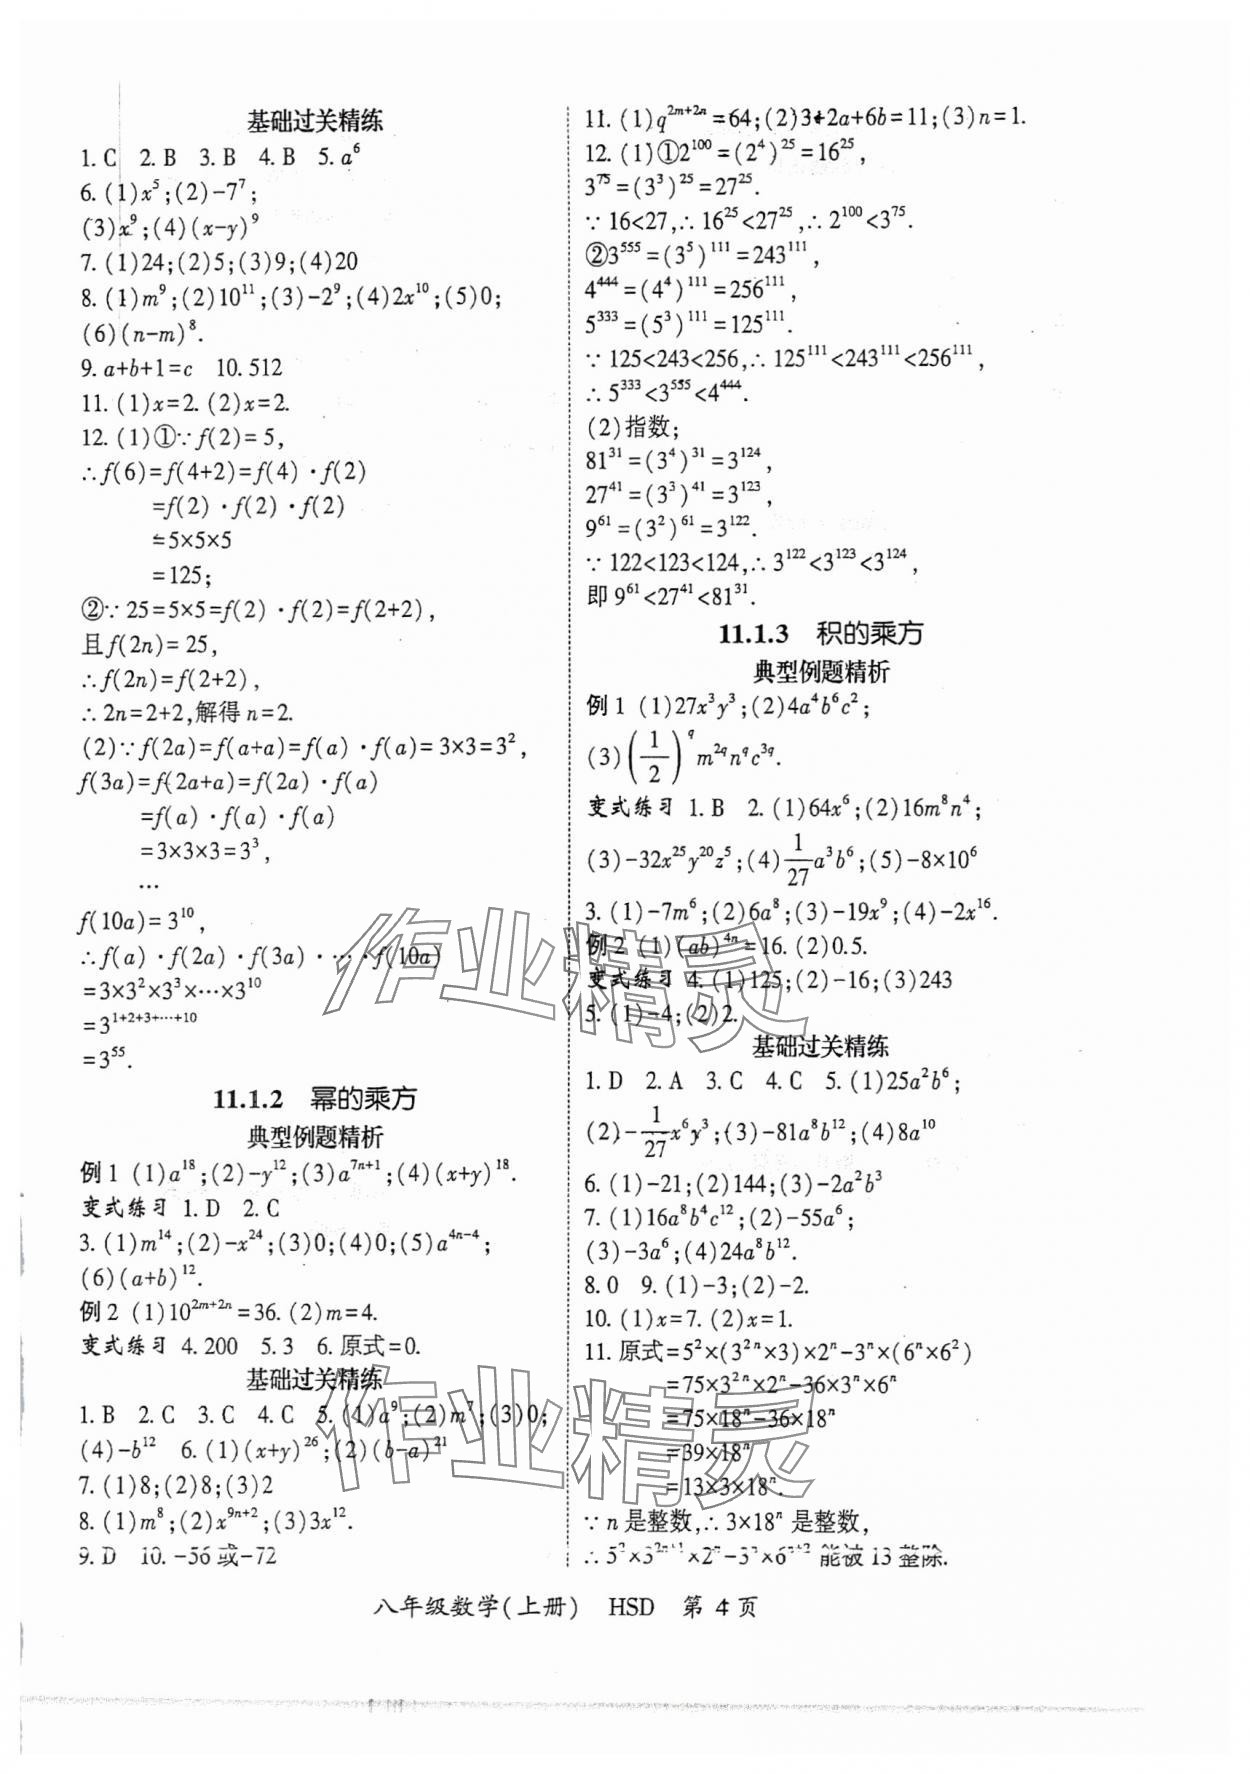 基础过关精练
1. C 2. B 3. B 4. B 5. a⁶
6. (1)x⁵;(2)-7⁷;
(3)x⁹;(4)(x-y)⁹
7. (1)24;(2)5;(3)9;(4)20
8. (1)m⁹;(2)10¹¹;(3)-2⁹;(4)2x¹⁰;(5)0;
(6)(n-m)⁸.
9. a+b+1=c 10. 512
11. (1)x=2. (2)x=2.
12. (1)①∵f(2)=5,
∴f(6)=f(4+2)=f(4)·f(2)
=f(2)·f(2)·f(2)
=5×5×5
=125;
②∵25=5×5=f(2)·f(2)=f(2+2),
且f(2n)=25,
∴f(2n)=f(2+2),
∴2n=2+2,解得n=2.
(2)∵f(2a)=f(a+a)=f(a)·f(a)=3×3=3²,
f(3a)=f(2a+a)=f(2a)·f(a)
=f(a)·f(a)·f(a)
=3×3×3=3³,
…
f(10a)=3¹⁰,
∴f(a)·f(2a)·f(3a)·…·f(10a)
=3×3²×3³×…×3¹⁰
=3^{1+2+3+…+10}
=3⁵⁵.
11.1.2 幂的乘方
典型例题精析
例1 (1)a¹⁸;(2)-y¹²;(3)a^{7n+1};(4)(x+y)¹⁸.
变式练习 1. D 2. C
3. (1)m¹⁴;(2)-x²⁴;(3)0;(4)0;(5)a^{4n-4};
(6)(a+b)¹².
例2 (1)10^{2m+2n}=36. (2)m=4.
变式练习 4. 200 5. 3 6. 原式=0.
基础过关精练
1. B 2. C 3. C 4. C 5. (1)a⁹;(2)m⁷;(3)0;
(4)-b¹² 6. (1)(x+y)²⁶;(2)(b-a)²¹
7. (1)8;(2)8;(3)2
8. (1)m⁸;(2)x^{9n+2};(3)3x¹².
9. D 10. -56或-72
11. (1)q^{2m+2n}=64;(2)3+2a+6b=11;(3)n=1.
12. (1)①2¹⁰⁰=(2⁴)²⁵=16²⁵,
3⁷⁵=(3³)²⁵=27²⁵.
∵16<27,∴16²⁵<27²⁵,∴2¹⁰⁰<3⁷⁵.
②3⁵⁵⁵=(3⁵)¹¹¹=243¹¹¹,
4⁴⁴⁴=(4⁴)¹¹¹=256¹¹¹,
5³³³=(5³)¹¹¹=125¹¹¹.
∵125<243<256,∴125¹¹¹<243¹¹¹<256¹¹¹,
∴5³³³<3⁵⁵⁵<4⁴⁴⁴.
(2)指数;
81³¹=(3⁴)³¹=3¹²⁴,
27⁴¹=(3³)⁴¹=3¹²³,
9⁶¹=(3²)⁶¹=3¹²².
∵122<123<124,∴3¹²²<3¹²³<3¹²⁴,
即9⁶¹<27⁴¹<81³¹.
11.1.3 积的乘方
典型例题精析
例1 (1)27x³y³;(2)4a⁴b⁶c²;
(3)(1/2)^q m^{2q}n^q c^{3q}.
变式练习 1. B 2. (1)64x⁶;(2)16m⁸n⁴;
(3)-32x²⁵y²⁰z⁵;(4)1/27 a³b⁶;(5)-8×10⁶
3. (1)-7m⁶;(2)6a⁸;(3)-19x⁹;(4)-2x¹⁶.
例2 (1)(ab)^{4n}=16. (2)0.5.
变式练习 4. (1)125;(2)-16;(3)243
5. (1)-4;(2)2.
基础过关精练
1. D 2. A 3. C 4. C 5. (1)25a²b⁶;
(2)-1/27 x⁶y³;(3)-81a⁸b¹²;(4)8a¹⁰
6. (1)-21;(2)144;(3)-2a²b³
7. (1)16a⁸b⁴c¹²;(2)-55a⁶;
(3)-3a⁶;(4)24a⁸b¹².
8. 0 9. (1)-3;(2)-2.
10. (1)x=7. (2)x=1.
11. 原式=5²×(3^{2n}×3)×2ⁿ-3ⁿ×(6ⁿ×6²)
=75×3^{2n}×2ⁿ-36×3ⁿ×6ⁿ
=75×18ⁿ-36×18ⁿ
=39×18ⁿ
=13×3×18ⁿ.
∵n是整数,∴3×18ⁿ是整数,
∴5²×3^{2n+1}×2ⁿ-3ⁿ×6^{n+2}能被13整除.
八年级数学(上册) HSD 第4页
作业精灵
作业精灵